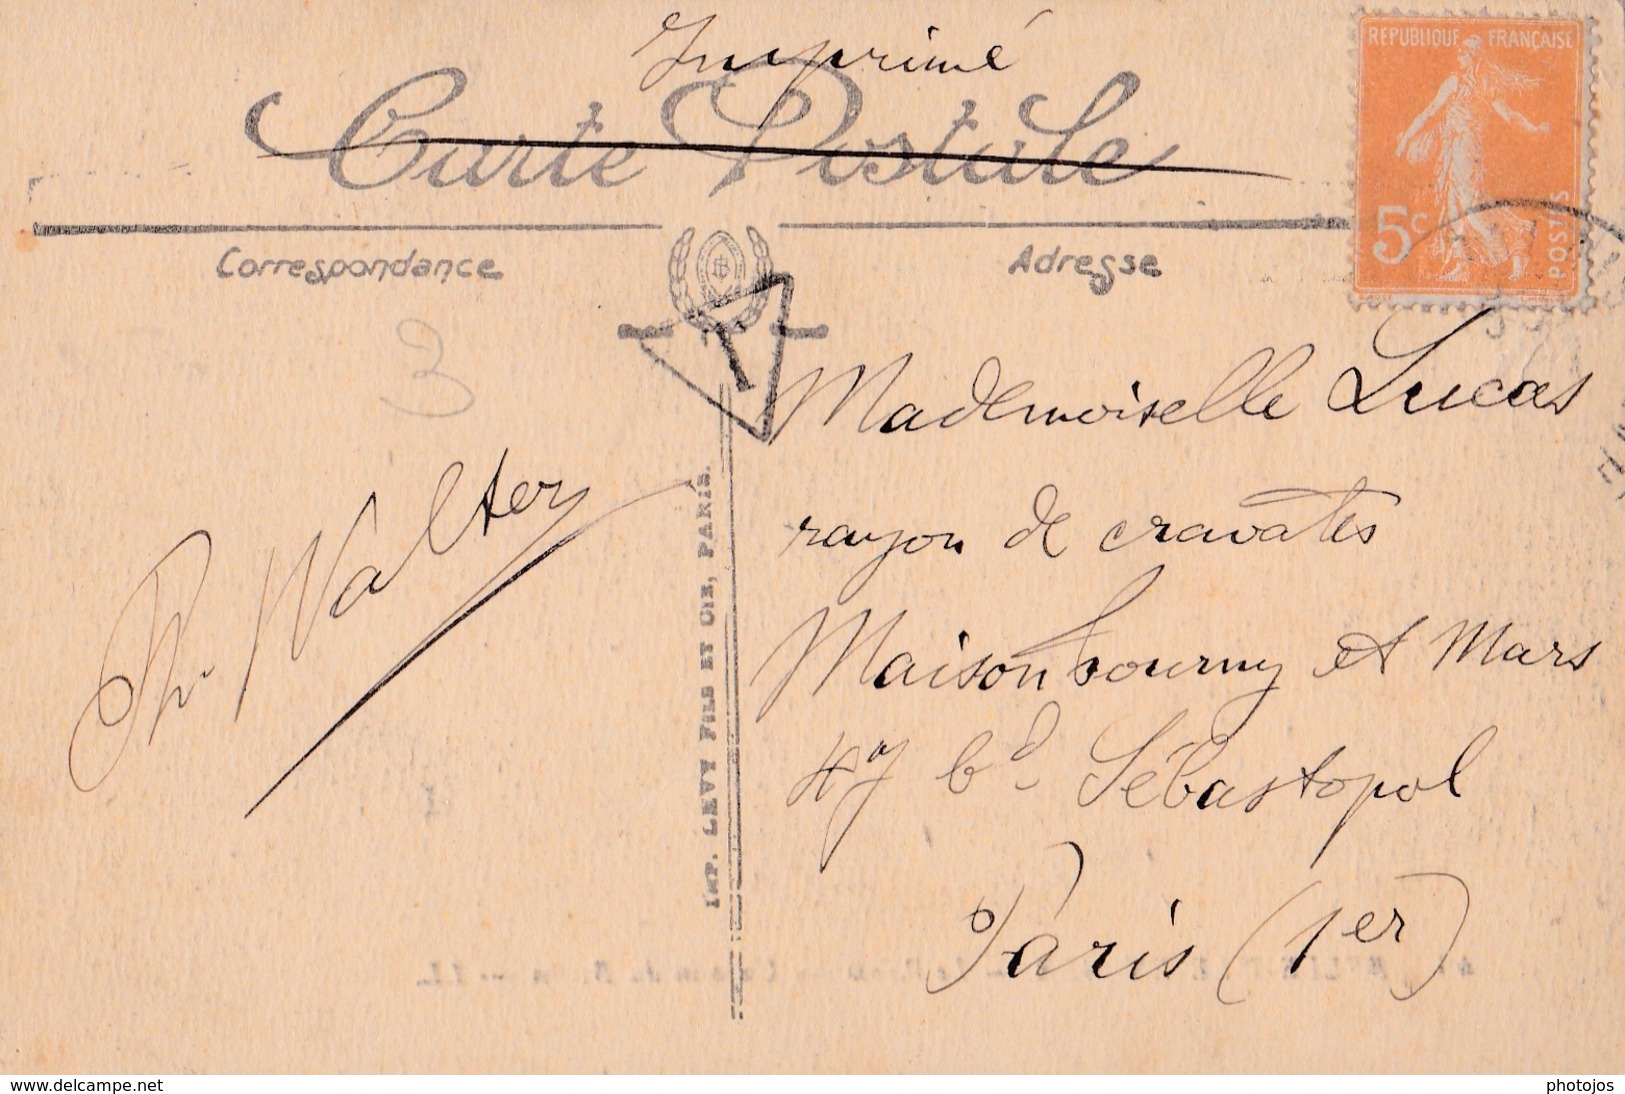 Imprimé
Carte Postale
RÉPUBLIQUE FRANÇAISE
5c
POSTES
Correspondance
Adresse
T
3
Mademoiselle Lucas
rayon de cravates
Maison Sourny et Mars
47 bd Sébastopol
Paris (1er)
Walter
IMP. LEVY FILS ET CIE, PARIS.
www.delcampe.net
photojos